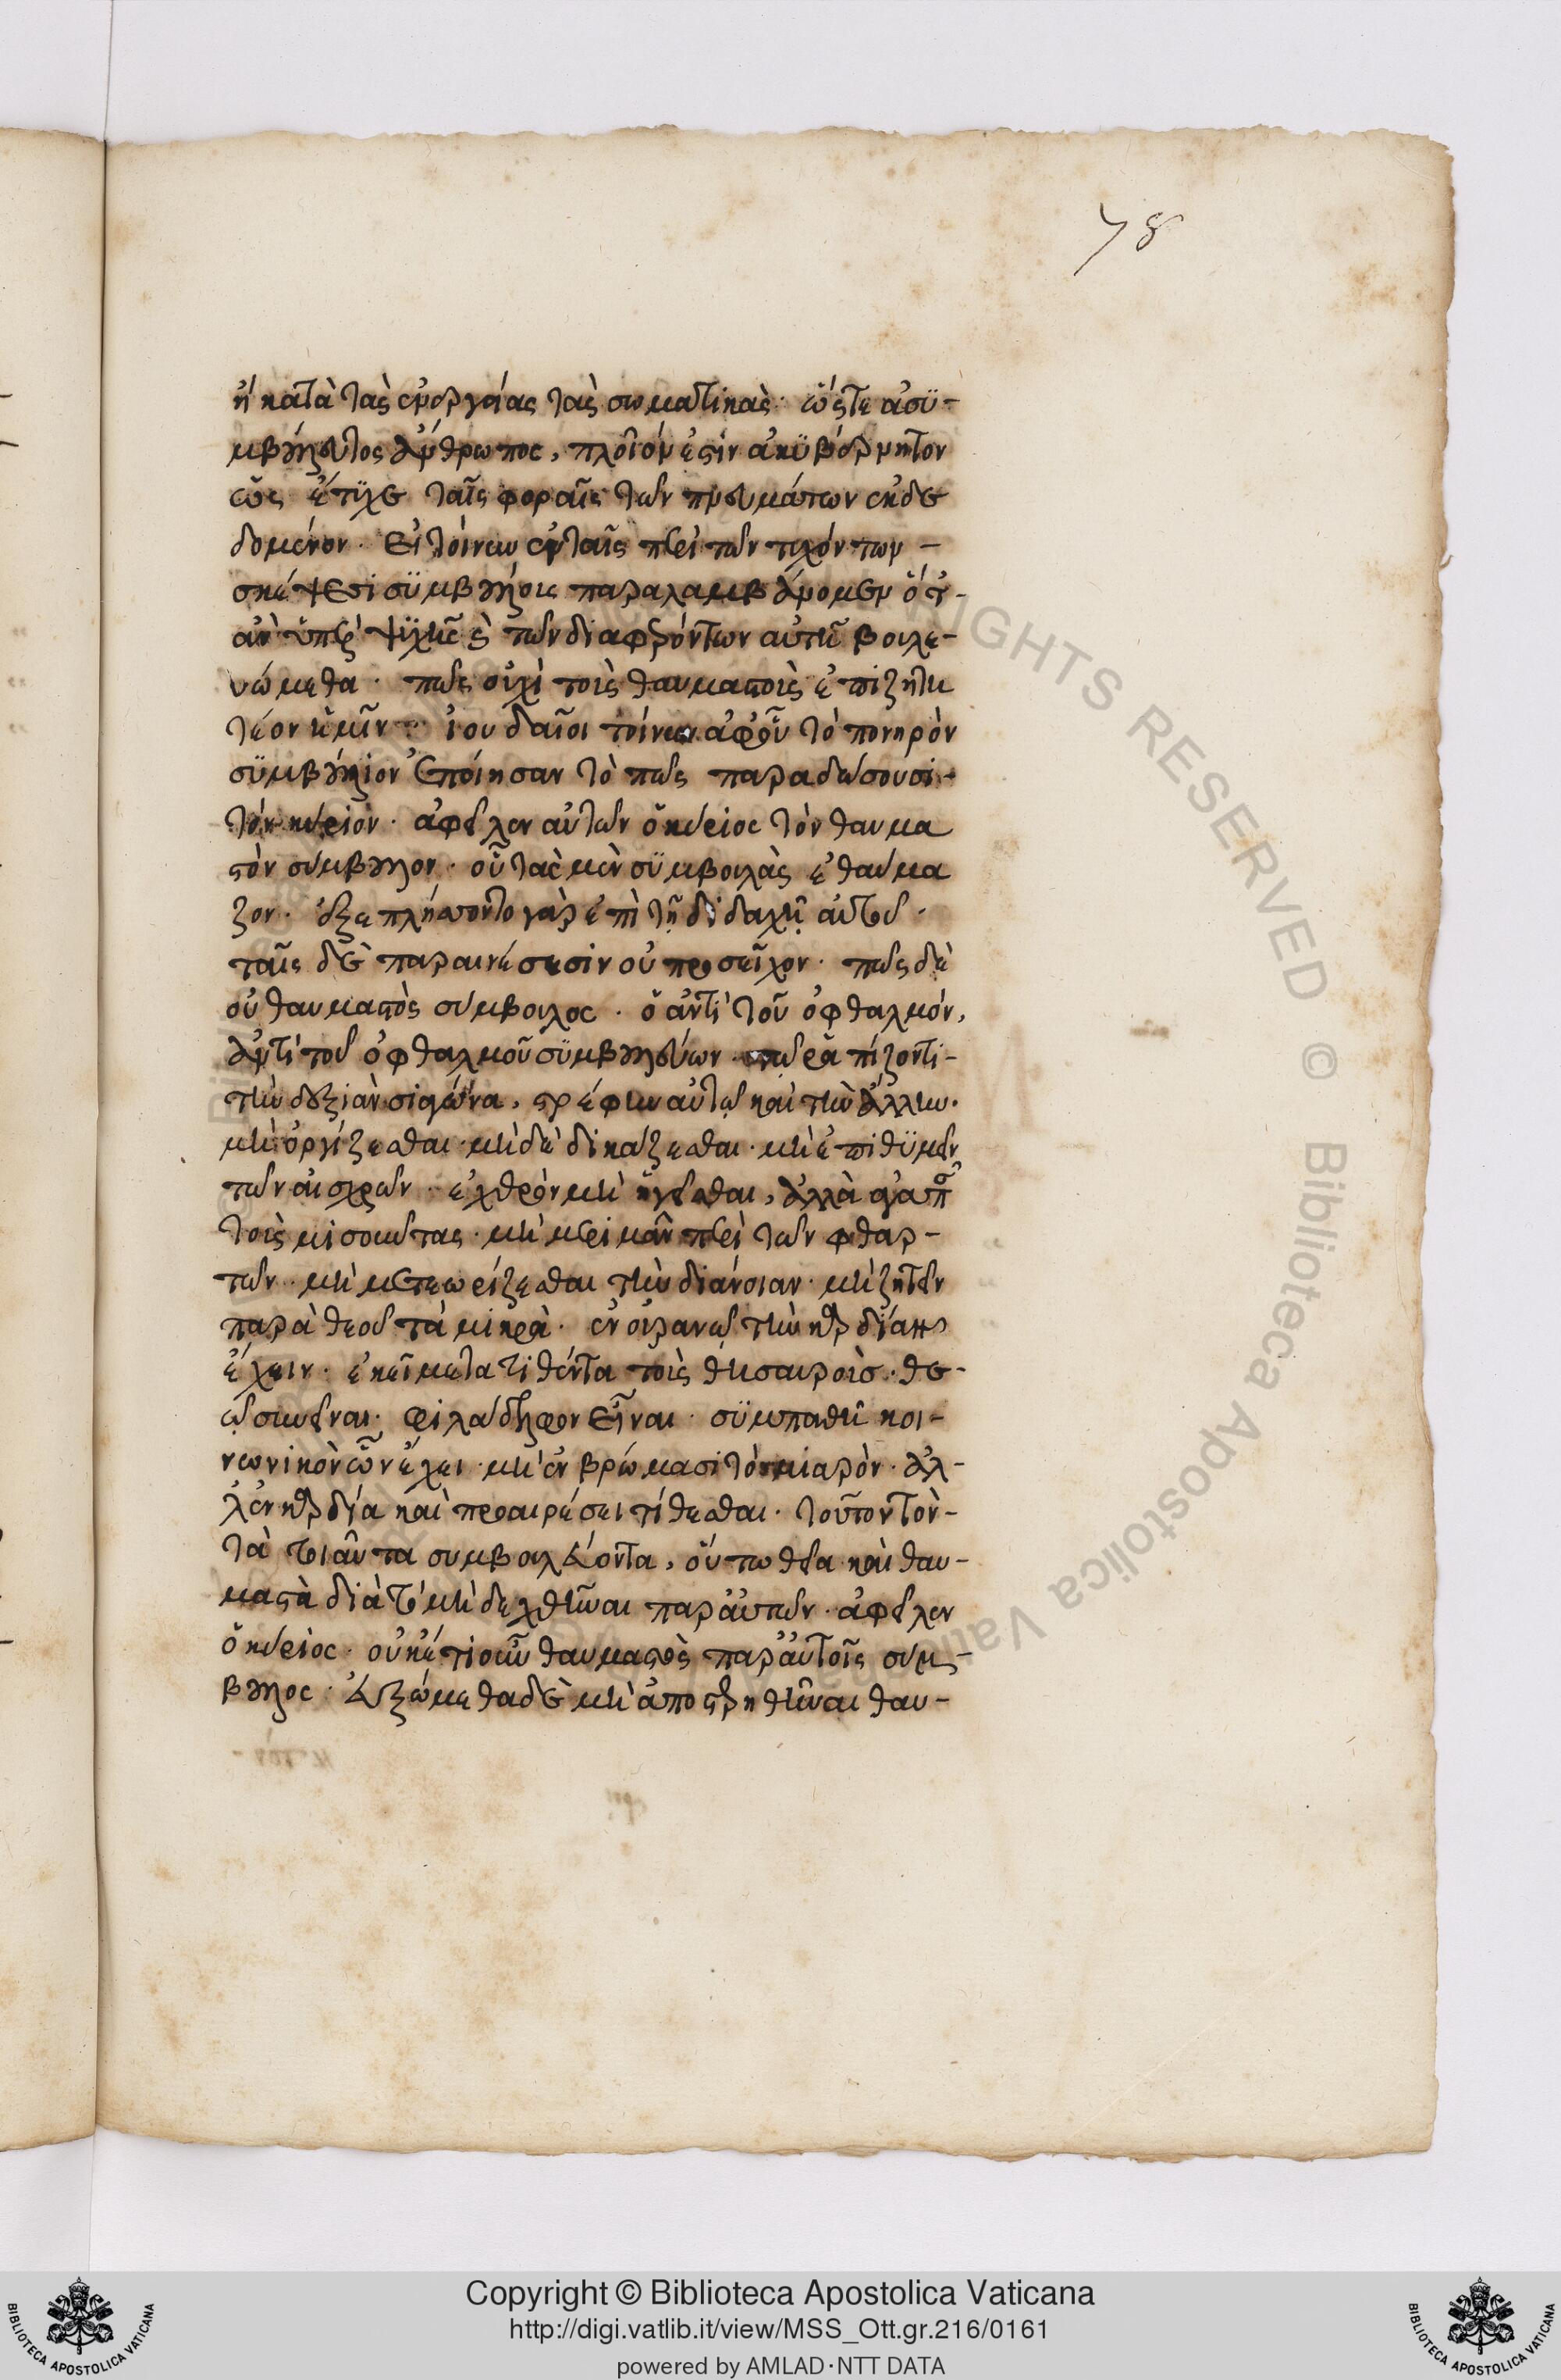 78
ἢ κατὰ τὰς ἐνεργείας τὰς σωματικὰς· ὥστε ἀσυ-
μβούλευτος ἄνθρωπος, πλοῖόν ἐστιν ἀκυβέρνητον
ὡς ἔτυχε ταῖς φοραῖς τῶν πνευμάτων ἐκδε
δομένον. Εἰ τοίνυν ἐν ταῖς περὶ τῶν τυχόντων-
σκέψεσι συμβούλους παραλαμβάνομεν ὅτ-
ἂν ὑπὲρ ψυχῆς καὶ τῶν διαφερόντων αὐτῇ βουλε-
υώμεθα. πῶς οὐχὶ τοὺς θαυμαστοὺς ἐπιζητη
τέον ἡμῖν· ἰουδαῖοι τοίνυν ἀφ' οὗ τὸ πονηρὸν
συμβούλιον ἐποίησαν τὸ πῶς παραδώσουσι-
τὸν κύριον. ἀφεῖλεν αὐτῶν ὁ κύριος τὸν θαυμα
στὸν σύμβουλον. οὗ τὰς μὲν συμβουλὰς ἐθαύμα
ζον. ἐξεπλήσσοντο γὰρ ἐπὶ τῇ διδαχῇ αὐτοῦ.
ταῖς δὲ παραινέσεσιν οὐ προσεῖχον. πῶς δὲ
οὐ θαυμαστὸς σύμβουλος. ὁ ἀντὶ τοῦ ὀφθαλμόν,
ἀντὶ τοῦ ὀφθαλμοῦ συμβουλεύων τῷ ῥαπίζοντι-
τὴν δεξιὰν σιαγόνα, στρέφειν αὐτῷ καὶ τὴν ἄλλην.
μὴ ὀργίζεσθαι. μὴ δὲ δικάζεσθαι. μὴ ἐπιθυμεῖν
τῶν αἰσχρῶν. ἐχθρὸν μὴ ἡγεῖσθαι, ἀλλὰ ἀγαπᾶν
τοὺς μισοῦντας. μὴ μεριμνᾶν περὶ τῶν φθαρ-
τῶν. μὴ μετεωρίζεσθαι τὴν διάνοιαν. μὴ ζητεῖν
παρὰ θεοῦ τὰ μικρὰ. ἐν οὐρανῷ τὴν καρδίαν
ἔχειν. ἐκεῖ μετατιθέντα τοὺς θησαυροὺς. θε-
ῷ συνεῖναι. φιλάδελφον εἶναι. συμπαθῆ κοι-
νωνικὸν ὧν ἔχει. μὴ ἐν βρώμασι τὸ μιαρὸν. ἀλ-
λ' ἐν καρδίᾳ καὶ προαιρέσει τίθεσθαι. τοῦτον τὸν-
τὰ τοιαῦτα συμβουλεύοντα, οὕτω θεῖα καὶ θαυ-
μαστὰ διὰ τὸ μὴ δεχθῆναι παρ' αὐτῶν. ἀφεῖλεν
ὁ κύριος. οὐκέτι οὖν θαυμαστὸς παρ' αὐτοῖς σύμ-
βουλος. εὐξώμεθα δὲ μὴ ἀποστερηθῆναι θαυ-
RIGHTS RESERVED © Biblioteca Apostolica Vaticana
Copyright © Biblioteca Apostolica Vaticana
http://digi.vatlib.it/view/MSS_Ott.gr.216/0161
powered by AMLAD·NTT DATA
BIBLIOTECA APOSTOLICA VATICANA
BIBLIOTECA APOSTOLICA VATICANA